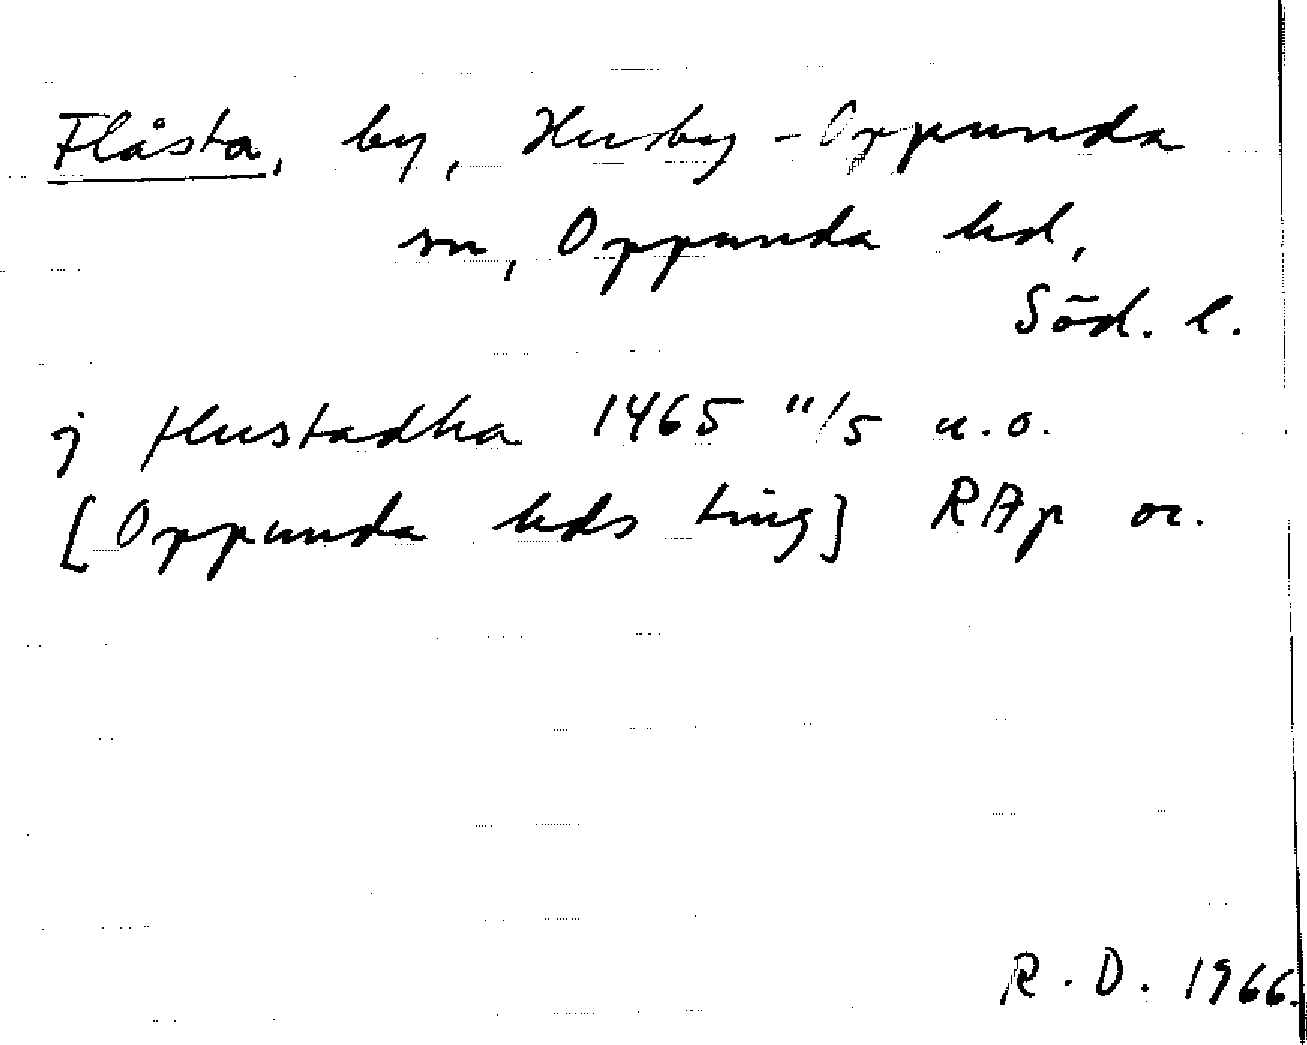 Flåsta, by, Husby-Oppunda
sn, Oppunda hd,
Söd. l.
j fflustadha 1465 11/5 u.o.
[Oppunda hds ting] RAp or.
R.D. 1966.